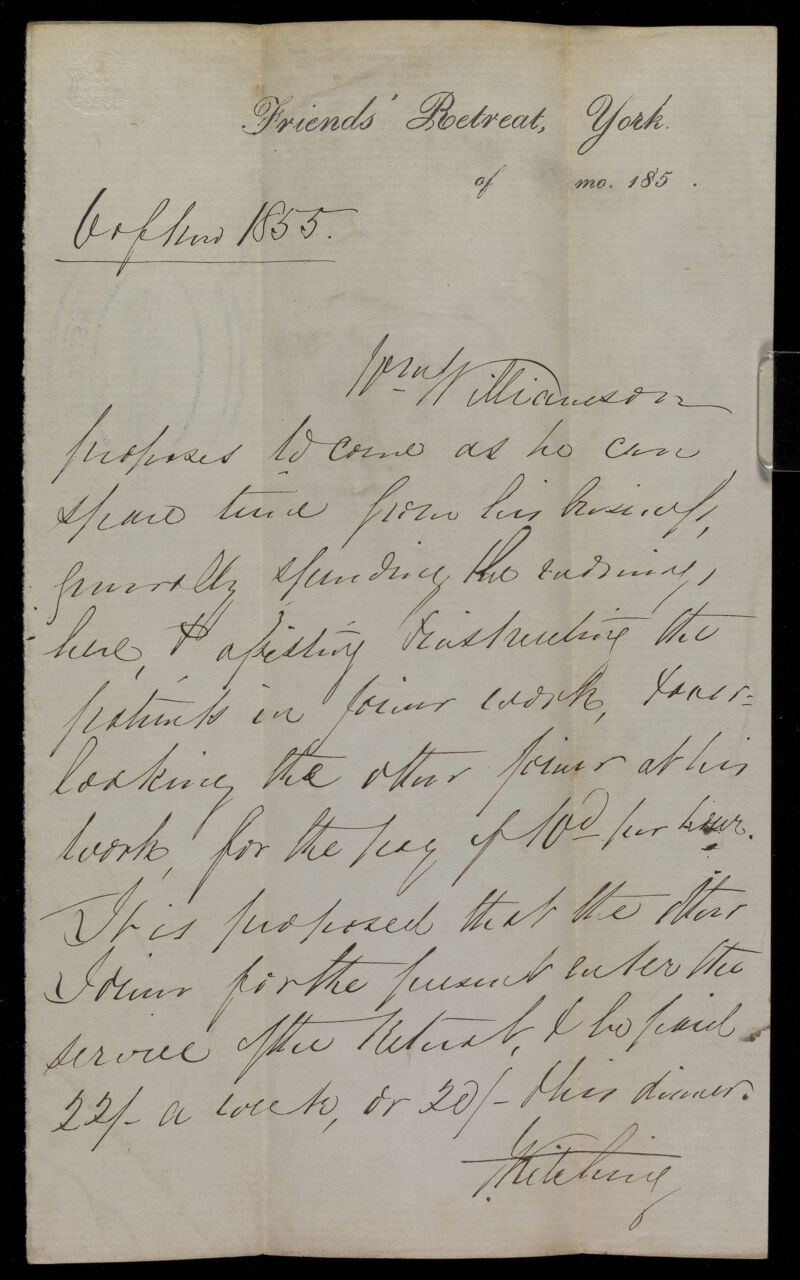 Friends' Retreat, York.
of mo. 185 .
1855.
Wm Williamson
proposes to come as he can
spare time from his business,
generally spending the evenings,
here, & assisting & instructing the
patients in joiner work, & over-
looking the other joiner at his
work, for the pay of 10d per hour.
It is proposed that the other
Joiner for the present enter the
service of the Retreat, & be paid
22/- a week, or 20/- & his dinner.
J Kitching